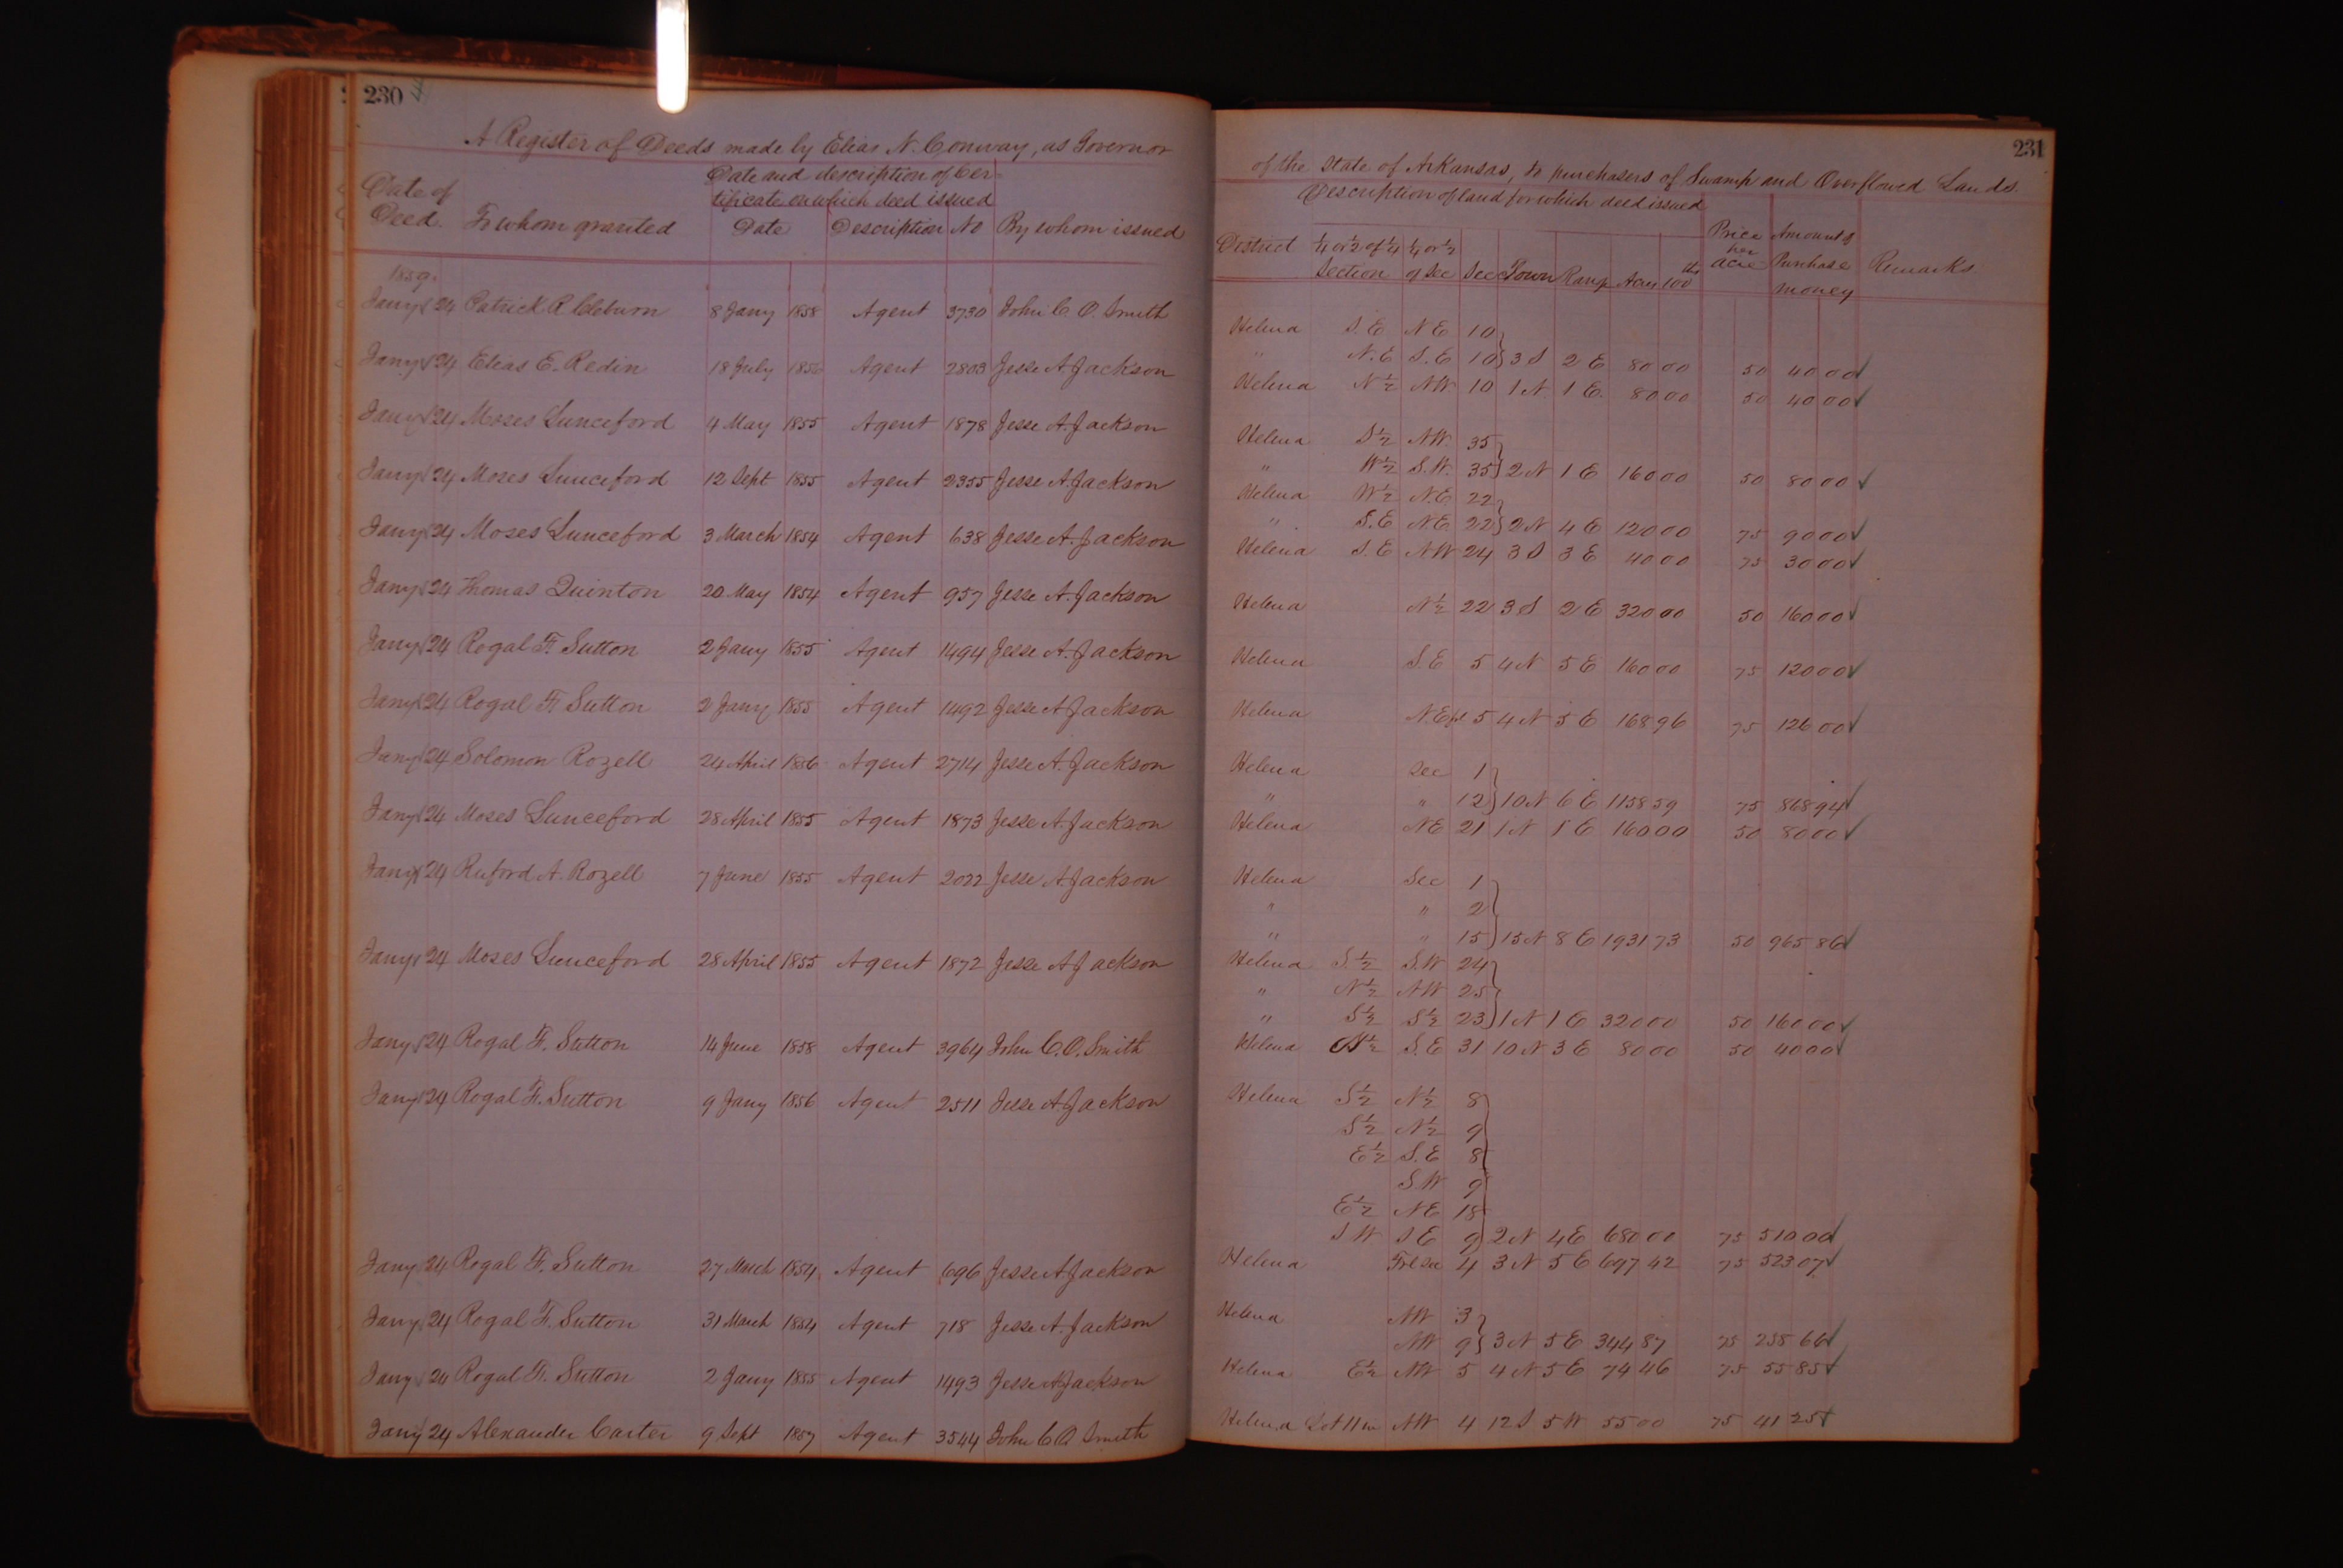 230
A Register of Deeds made by Elias N. Conway, as Governor
Date of Deed. To whom granted Date and description of Cer-
tificate on which deed issued
Date Description No By whom issued
1859.
Jany 24 Patrick R Cleburn 8 Jany 1858 Agent 3730 John C. O. Smith
Jany 24 Elias E. Redin 18 July 1856 Agent 2803 Jesse A Jackson
Jany 24 Moses Lunceford 4 May 1855 Agent 1878 Jesse A. Jackson
Jany 24 Moses Lunceford 12 Sept 1855 Agent 2355 Jesse A. Jackson
Jany 24 Moses Lunceford 3 March 1854 Agent 638 Jesse A. Jackson
Jany 24 Thomas Quinton 20 May 1854 Agent 957 Jesse A. Jackson
Jany 24 Rogal F. Sutton 2 Jany 1855 Agent 1494 Jesse A. Jackson
Jany 24 Rogal F. Sutton 2 Jany 1855 Agent 1492 Jesse A Jackson
Jany 24 Solomon Rozell 24 April 1856 Agent 2714 Jesse A. Jackson
Jany 24 Moses Lunceford 28 April 1855 Agent 1873 Jesse A. Jackson
Jany 24 Ruford A. Rozell 7 June 1855 Agent 2022 Jesse A Jackson
Jany 24 Moses Lunceford 28 April 1855 Agent 1872 Jesse A Jackson
Jany 24 Rogal F. Sutton 14 June 1858 Agent 3964 John C. O. Smith
Jany 24 Rogal F. Sutton 9 Jany 1856 Agent 2511 Jesse A Jackson
Jany 24 Rogal F. Sutton 27 March 1854 Agent 696 Jesse A Jackson
Jany 24 Rogal F. Sutton 31 March 1854 Agent 718 Jesse A. Jackson
Jany 24 Rogal F. Sutton 2 Jany 1855 Agent 1493 Jesse A Jackson
Jany 24 Alexander Carter 9 Sept 1857 Agent 3544 John C O Smith
231
of the State of Arkansas, to purchasers of Swamp and Overflowed Lands.
Description of land for which deed issued
District ¼ or ½ of ¼ Section ¼ or ½ of Sec Sec Town Range Acres 100th Price per Acre Amount of Purchase money Remarks
Helena S. E N E 10
" N. E S. E 10 3 S 2 E 80 00 50 40 00
Helena N ½ NW. 10 1 N. 1 E. 80 00 50 40 00
Helena S ½ NW. 35
" W ½ S.W. 35 2 N 1 E 160 00 50 80 00
Helena W ½ N.E 22
" S.E NE 22 2 N 4 E 120 00 75 90 00
Helena S. E NW 24 3 S 3 E 40 00 75 30 00
Helena N ½ 22 3 S 2 E 320 00 50 160 00
Helena S E 5 4 N 5 E 160 00 75 120 00
Helena N E fl 5 4 N 5 E 168 96 75 126 00
Helena Sec 1
" " 12 10 N 6 E 1158 59 75 868 94
Helena NE 21 1 N 1 E 160 00 50 80 00
Helena Sec 1
" " 2
" " 15 15 N 8 E 1931 73 50 965 86
Helena S. ½ S.W 24
" N ½ NW 25
" S ½ S ½ 23 1 N 1 E 320 00 50 160 00
Helena N ½ S. E 31 10 N 3 E 80 00 50 40 00
Helena S ½ N ½ 8
S ½ N ½ 9
E ½ S. E 8
S W 9
E ½ N E 18
S W S E 9 2 N 4 E 680 00 75 510 00
Helena Frl Sec 4 3 N 5 E 697 42 75 523 07
Helena NW 3
NW 9 3 N 5 E 344 87 75 258 66
Helena E ½ NW 5 4 N 5 E 74 46 75 55 85
Helena Lot 11 in NW 4 12 S 5 W 55 00 75 41 25